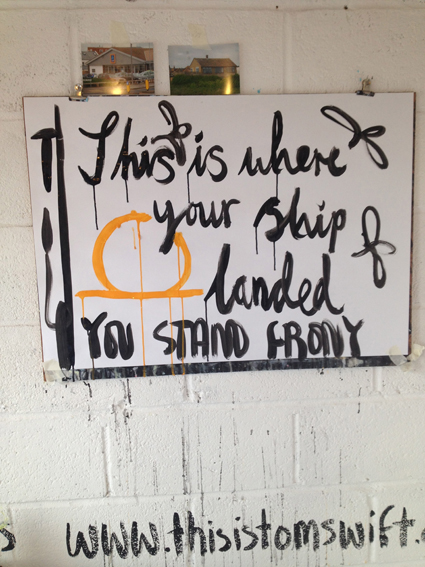 This is where
your ship
landed
YOU STAND FRONY
s www.thisistomswift.